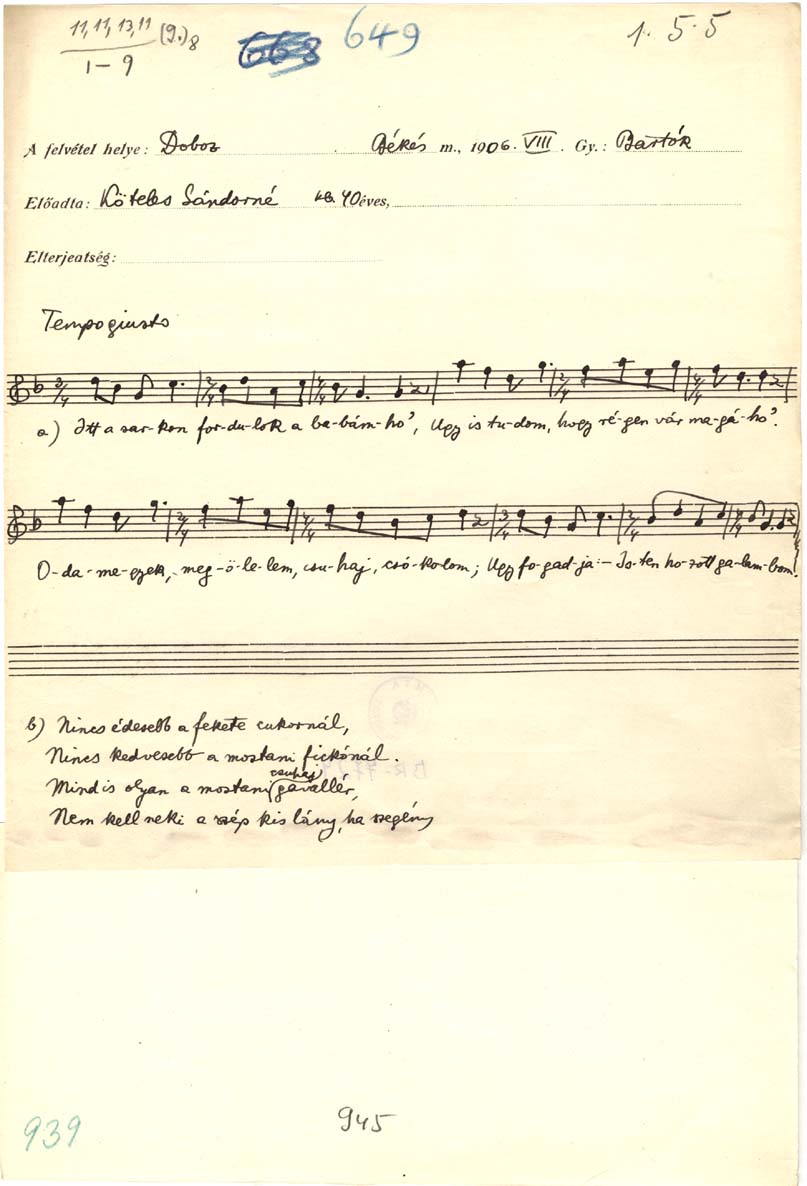 11, 11, 13, 11 (9.) 8
1–9
668 649
1. 5. 5
A felvétel helye: Doboz Békés m., 1906. VIII. Gy.: Bartók
Előadta: Köteles Sándorné kb. 40 éves,
Elterjeatség:
Tempo giusto
a) Itt a sar-kon for-du-lok a ba-bám-ho', Ugy is tu-dom, hogy ré-gen vár ma-gá-ho'.
O-da-me-gyek, meg-ö-le-lem, csu-haj, csó-ko-lom; Ugy fo-gad-ja:– Is-ten ho-zott ga-lam-bom!
b) Nincs édesebb a fekete cukornál,
Nincs kedvesebb a mostani fickónál.
csuhaj
Mind is olyan a mostani gavallér,
Nem kell neki a szép kis lány, ha szegény
939
945